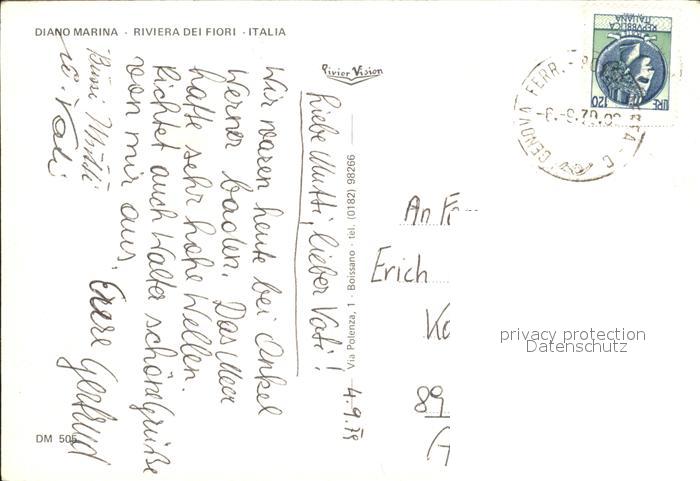 DIANO MARINA - RIVIERA DEI FIORI - ITALIA
Rivier Vision
Via Polenza, 1 - Boissano - tel. (0182) 98266
DM 505
REPVBBLICA
ITALIANA
LIRE 120
GENOVA FERR.
4.9.79
Liebe Mutti, lieber Vati!
Wir waren heute bei Onkel
Werner baden. Das Meer
hatte sehr hohe Wellen.
Richtet auch Walter schöne Grüße
von mir aus. Eure Gertrud
Bussi Mutti
u. Vati
An Fr
Erich
Ko
89
G
privacy protection
Datenschutz